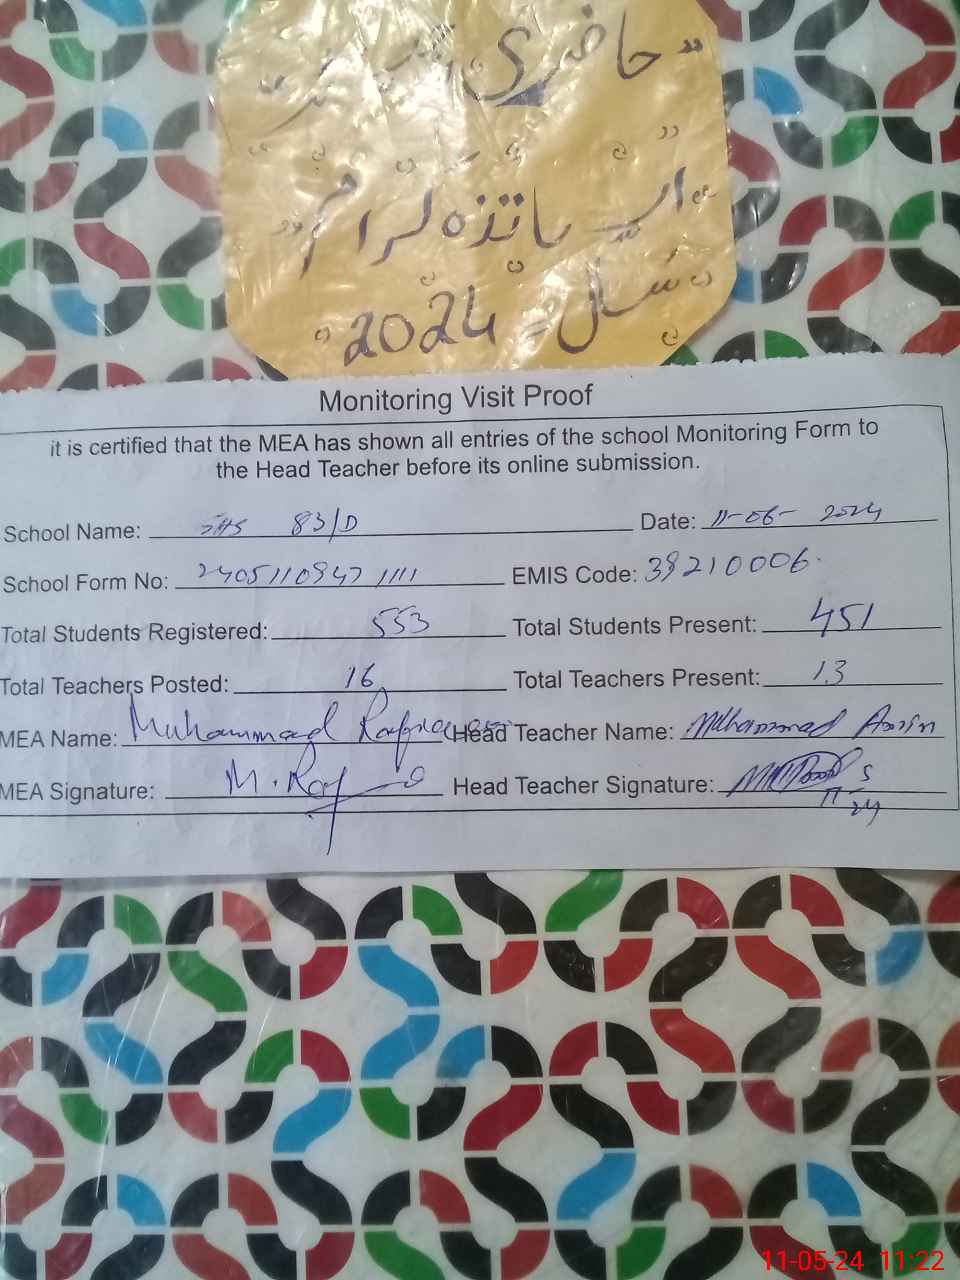 "حاضری رجسٹر"
"اساتذہ کرام"
سال = 2024
Monitoring Visit Proof
it is certified that the MEA has shown all entries of the school Monitoring Form to
the Head Teacher before its online submission.
School Name: GHS 83/D Date: 11-06-2024
School Form No: 2405110947 1111 EMIS Code: 39210006
Total Students Registered: 553 Total Students Present: 451
Total Teachers Posted: 16 Total Teachers Present: 13
MEA Name: Muhammad Head Teacher Name: Muhammad Amin
MEA Signature: M. Raf Head Teacher Signature:
11-05-24 11:22